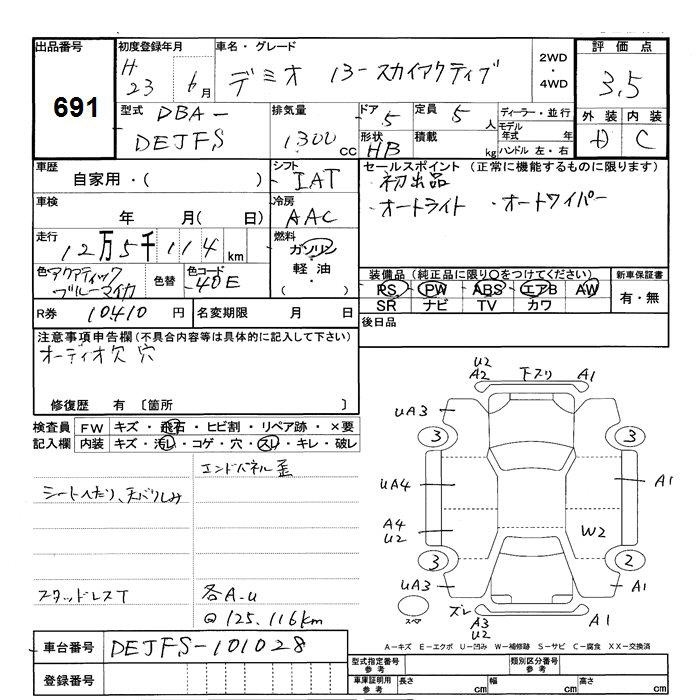 出品番号
691
初度登録年月
H 23 6月
車名・グレード
デミオ 13-スカイアクティブ
2WD
・
4WD
評価点
3.5
外装 内装
C
型式 DBA-
DEJFS
排気量
1300 cc
ドア 5
形状 HB
定員 5 人
積載 kg
ディーラー・並行
モデル年式 年
ハンドル 左・右
車歴
自家用・( )
シフト
IAT
セールスポイント (正常に機能するものに限ります)
・初出品
・オートライト ・オートワイパー
車検
年 月( 日)
冷房
AAC
走行
12万5千114km
燃料
ガソリン
・
軽油
( )
色 アクアティックブルーマイカ
色替
色コード
40E
装備品 (純正品に限り〇をつけてください)
PS PW ABS エアB AW
SR ナビ TV カワ
新車保証書
有・無
R券 10410円
名変期限 月 日
後日品
注意事項申告欄(不具合内容等は具体的に記入して下さい)
オーディオ欠 穴
修復歴 有 〔箇所 〕
検査員記入欄
FW キズ・飛石・ヒビ割・リペア跡・×要
内装 キズ・汚レ・コゲ・穴・スレ・キレ・破レ
エンドパネル歪
シートヘたり、天バリしみ
スタッドレスT
各A.u
@125.116km
U2
A2 下スリ A1
uA3
3 3
uA4 A1
A4
U2 W2
3 2
uA3 A1
スペア
ズレ A3
U2 A1
A-キズ E-エクボ U-凹み W-補修跡 S-サビ C-腐食 XX-交換済
車台番号 DEJFS-101028
登録番号
型式指定番号 参考
類別区分番号 参考
車庫証明用 参考
長さ cm 幅 cm 高さ cm